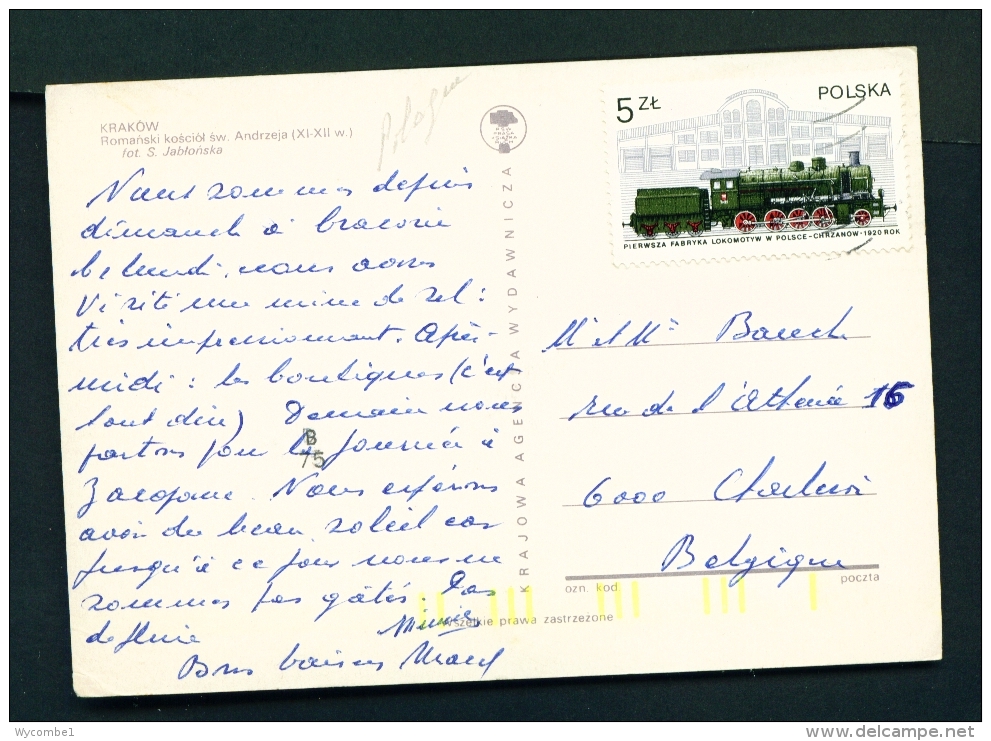 KRAKÓW
Romański kościół św. Andrzeja (XI-XII w.)
fot. S. Jabłońska
Pologne
5 ZŁ
POLSKA
PIERWSZA FABRYKA LOKOMOTYW W POLSCE-CHRZANÓW-1920 ROK
Nous sommes depuis
dimanche à
nous avons
Visité une mine de sel :
très impressionnant. Après-
midi : les boutiques (c'est
tout dire) Demain nous
partons pour la journée à
Zacopane. Nous espérons
avoir du beau soleil car
jusqu'à ce jour nous ne
sommes pas gâtés. Pas
de pluie
Bons baisers
B
75
KRAJOWA AGENCJA WYDAWNICZA
Mr et Me
rue de l'Athénée 16
6000 Charleroi
Belgique
ozn. kod
poczta
Wszelkie prawa zastrzeżone
Wycombe1
delcampe.net